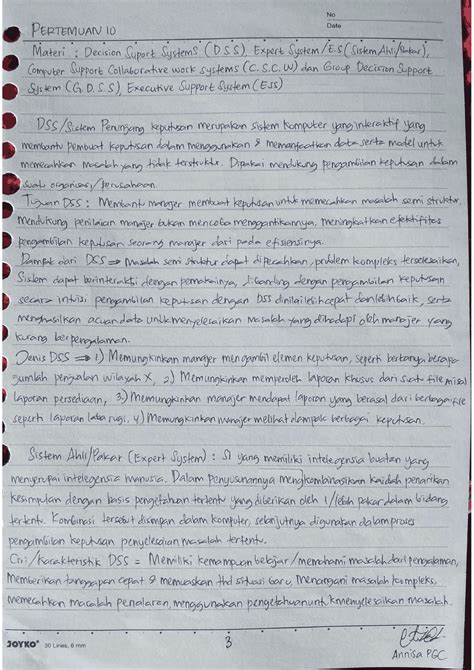 No
Date
PERTEMUAN 10
Materi : Decision Suport Systems (DSS), Expert System/ES (Sistem Ahli/Pakar),
Computer Support Collaborative work systems (C.S.C.W) dan Group Decision Support
System (G.D.S.S), Executive Support System (ESS)
DSS/Sistem Penunjang keputusan merupakan sistem komputer yang interaktif yang
membantu pembuat keputusan dalam menggunakan & memanfaatkan data serta model untuk
memecahkan masalah yang tidak terstruktur. Dipakai mendukung pengambilan keputusan dalam
suatu organisasi/perusahaan.
Tujuan DSS : Membantu manajer membuat keputusan untuk memecahkan masalah semi struktur,
mendukung penilaian manajer bukan mencoba menggantikannya, meningkatkan efektifitas
pengambilan keputusan seorang manajer dari pada efisiensinya.
Dampak dari DSS => Masalah semi struktur dapat dipecahkan, problem kompleks terselesaikan,
Sistem dapat berinteraksi dengan pemakainya, dibanding dengan pengambilan keputusan
secara intuisi pengambilan keputusan dengan DSS dinilai lebih cepat dan lebih baik, serta
menghasilkan acuan data untuk menyelesaikan masalah yang dihadapi oleh manajer yang
kurang berpengalaman.
Jenis DSS => 1) Memungkinkan manager mengambil elemen keputusan, seperti bertanya berapa
jumlah penjualan wilayah X, 2) Memungkinkan memperoleh laporan khusus dari suatu file misal
laporan persediaan, 3) Memungkinkan manajer mendapat laporan yang berasal dari berbagai file
seperti laporan laba rugi, 4) Memungkinkan manajer melihat dampak berbagai keputusan.
Sistem Ahli/Pakar (Expert System) : SI yang memiliki intelegensia buatan yang
menyerupai intelegensia manusia. Dalam penyusunannya mengkombinasikan kaidah penarikan
kesimpulan dengan basis pengetahuan tertentu yang diberikan oleh 1/lebih pakar dalam bidang
tertentu. Kombinasi tersebut disimpan dalam komputer, selanjutnya digunakan dalam proses
pengambilan keputusan penyelesaian masalah tertentu.
Ciri/Karakteristik DSS = Memiliki kemampuan belajar/memahami masalah dari pengalaman,
Memberikan tanggapan cepat & memuaskan thd situasi baru, Menangani masalah kompleks,
memecahkan masalah penalaran, menggunakan pengetahuan untk menyelesaikan masalah.
JOYKO 30 Lines, 8 mm
3
Annisa PGC